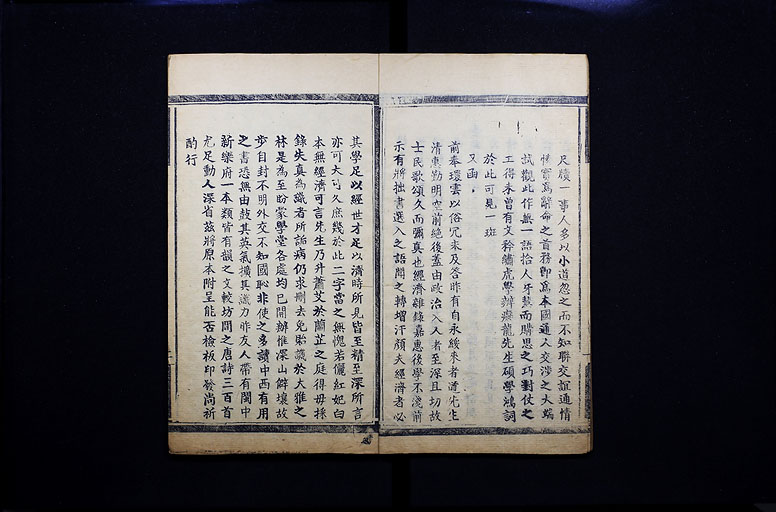 尺牘一事人多以小道忽之而不知聯交誼通情
愫實為辭命之首務即為本國通人交涉之大端
試觀此作無一語拾人牙慧而賭思之巧對仗之
工得未曾有文幹繡虎學辦癡龍先生碩學鴻詞
於此可見一班
又函
前奉環雲以俗冗未及答昨有自永綏來者道先生
清東勤明空前絕後蓋由政治入人者至深且切故
士民歌頌久而彌真也經濟雜錄嘉惠後學不淺前
示有將拙書選入之語聞之轉增汗顏夫經濟者必
其學足以經世才足以濟時所見皆至精至深所言
亦可大可久庶幾於此二字當之無愧若儷紅妃白
本無經濟可言先生乃升蕭艾於蘭芷之庭得毋採
錄失真為識者所詬病仍求刪去免貽譏於大雅之
林是為至盼蒙學堂各處均已開辦惟深山僻壤故
步自封不明外交不知國恥非使之多讀中西有用
之書恐無由鼓其英氣擴其識力昨友人帶有閩中
新樂府一本類皆有韻之文較坊間之唐詩三百首
尤足動人深省茲將原本附呈能否檢板印發尚祈
酌行